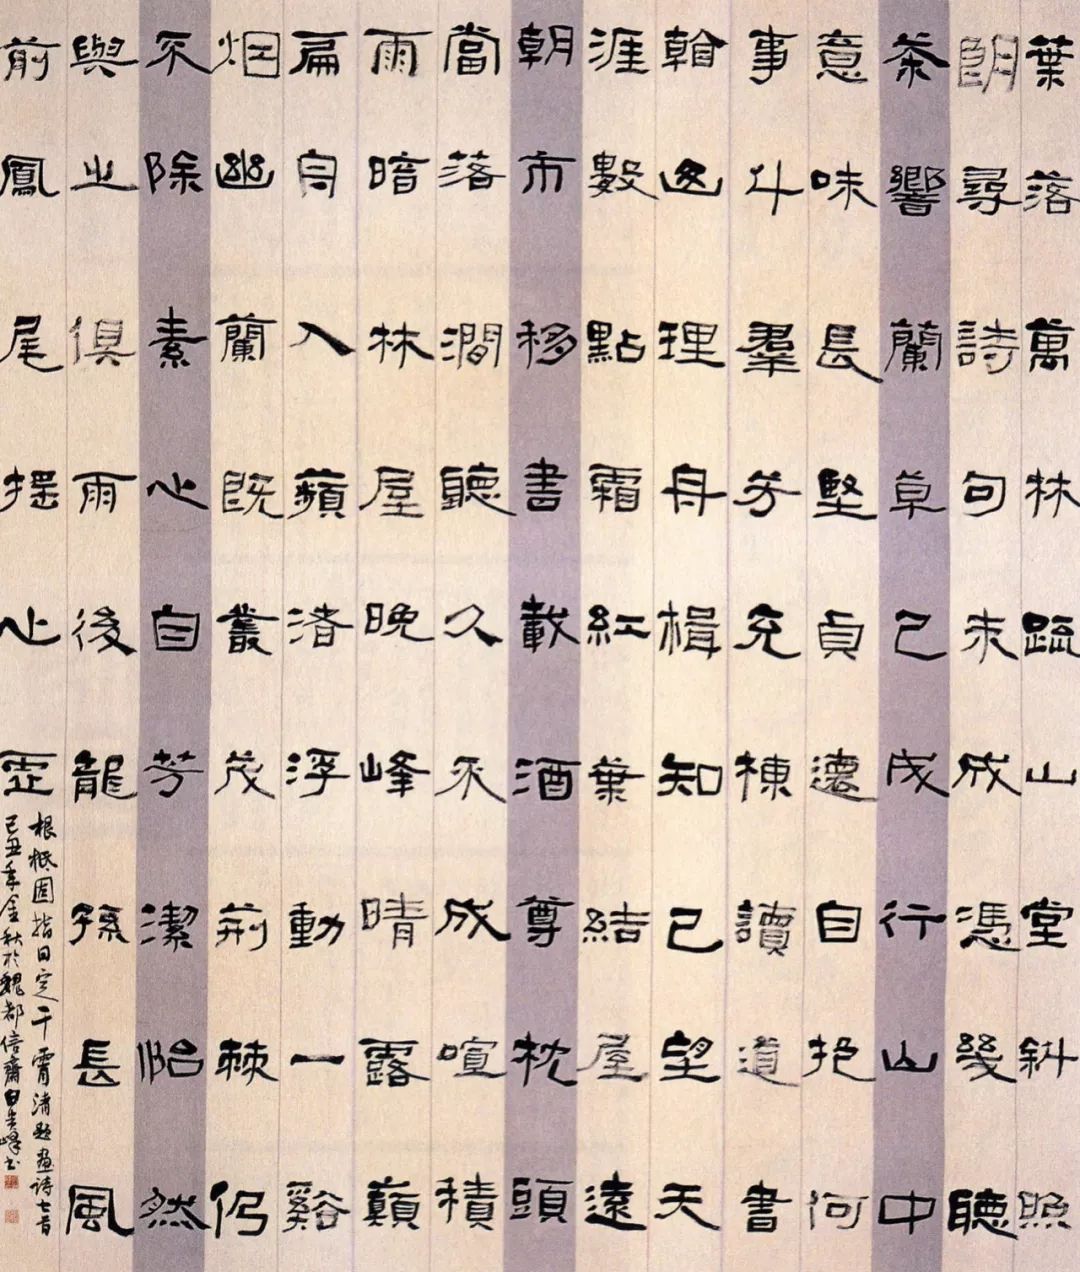 葉落萬林疏山堂斜照
朗尋詩句未成憑幾聽
茶響蘭草已成行山中
意味長堅貞還自抱何
事斗羣芳充棟讀道書
翰理舟楫知己望天
涯數點霜紅葉結屋遠
朝市移書載酒尊枕頭
當落澗聽久不成喧積
雨暗林屋晚峰晴露巔
扁舟入蘋渚浮動一谿
烟幽蘭既叢茂荊棘仍
不除素心自芳潔怡然
與之俱雨後龍孫長風
前鳳尾搖心虛
根柢固指日定干霄清題畫詩七首
己丑年金秋於魏都信齋白峰书